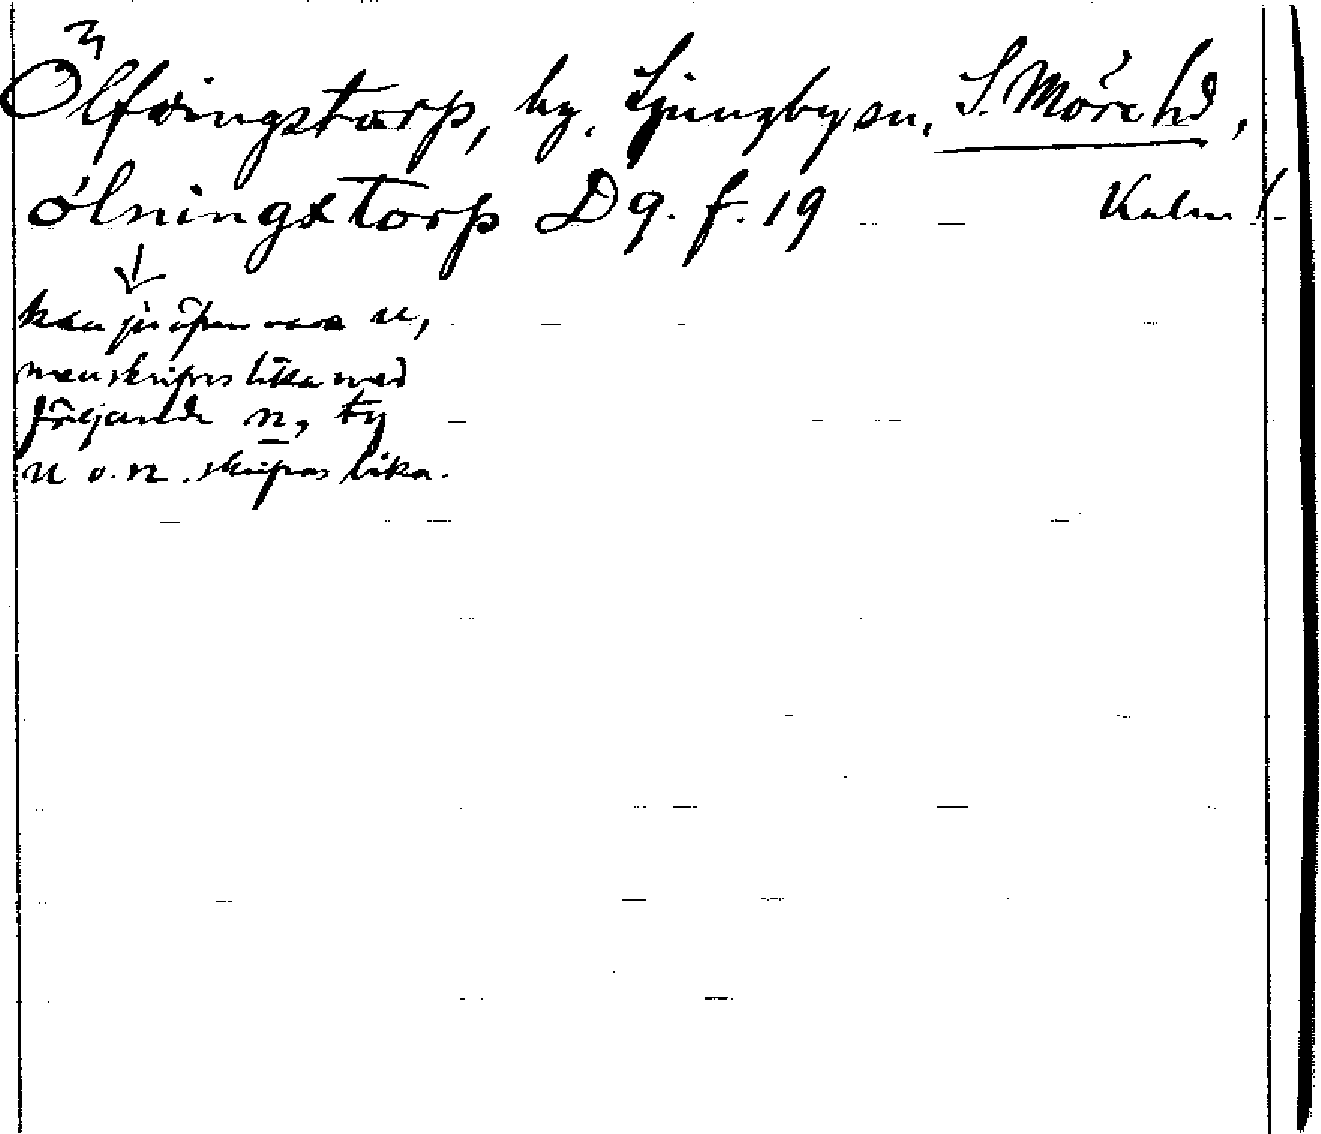 Ölfvingstorp, by, Ljungby sn, S. Möre hd,
ólningxtorp D 9. f. 19 Kalm. l.
kan ju äfven vara u,
men skrifves lika med
följande n, ty
u o. n. skrifvas lika.